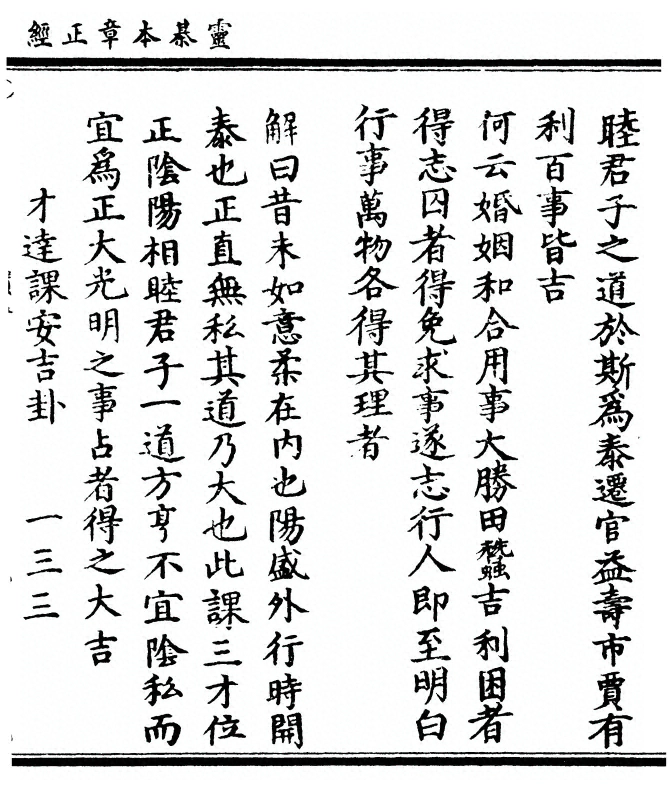 靈棊本章正經
睦君子之道於斯為泰遷官益壽市賈有
利百事皆吉
何云婚姻和合用事大勝田蠶吉利困者
得志囚者得免求事遂志行人即至明白
行事萬物各得其理者
解曰昔未如意柔在内也陽盛外行時開
泰也正直無私其道乃大也此課三才位
正陰陽相睦君子一道方亨不宜陰私而
宜為正大光明之事占者得之大吉
才達課安吉卦 一三三